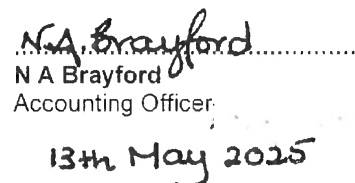 N.A. Brayford
N A Brayford
Accounting Officer
13th May 2025